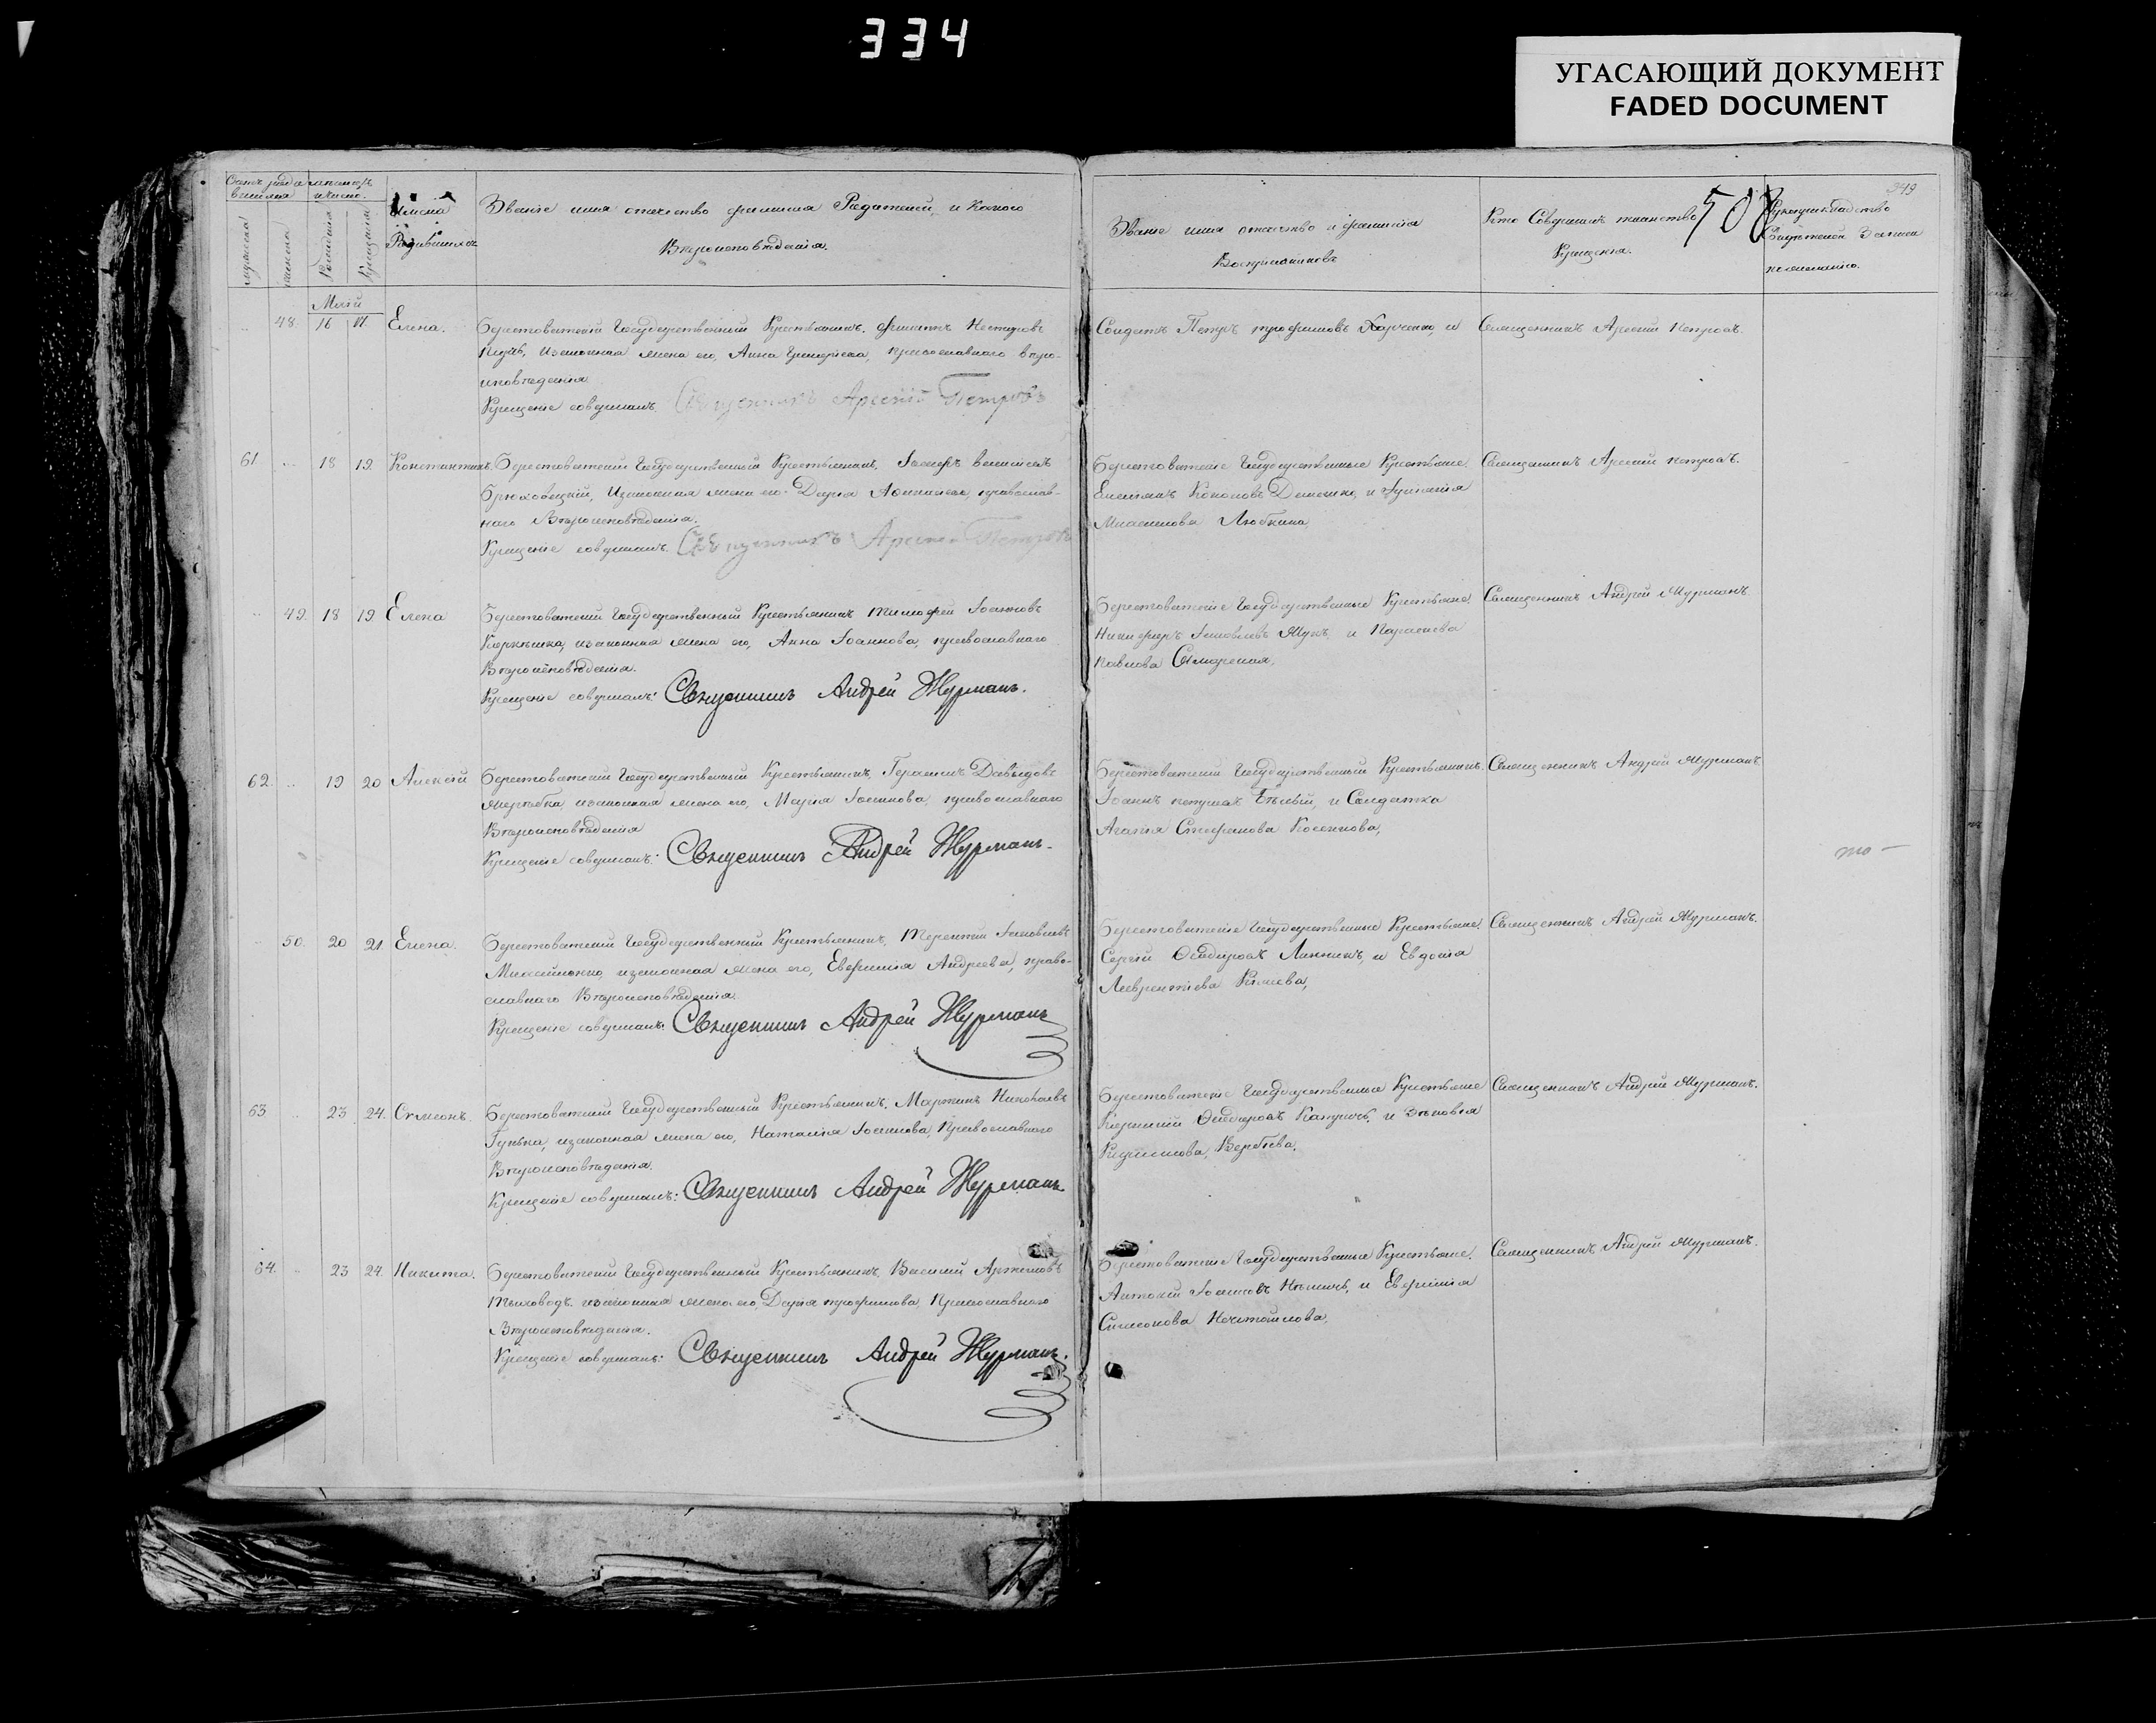 334
УГАСАЮЩИЙ ДОКУМЕНТ
FADED DOCUMENT
349
508
Счетъ родившихся
мужеска
женска
рожденія
крещенія
Имена Родившихся
Званіе имя отчество фамилія Родителей, и Какого
Вѣроисповѣданія.
Званіе имя отчество и фамилія
Воспріемниковъ
Кто Совершалъ таинство
Крещенія.
Рукоприкладство
Свидѣтелей Записи
по желанію.
Май
48. 16 17. Елена.
Берестоватскій Государственный Крестьянинъ, Филиппъ Несторовъ
законная жена его, Анна православнаго вѣро-
исповѣданія.
Крещеніе совершалъ Священникъ Арсеній Петровъ
Солдатъ Петръ трофимовъ Харченко, и
Священникъ Арсеній петровъ.
61. 18 19. Константинъ.
Берестоватскій Государственный Крестьянинъ,
Брюховецкій, законная жена его Дарія православ-
наго Вѣроисповѣданія.
Крещеніе совершалъ. Священникъ Арсеній Петровъ
Берестоватскіе Государственные Крестьяне.
Кононовъ и
Любкина,
Священникъ Арсеній петровъ.
49. 18 19 Елена
Берестоватскій Государственный Крестьянинъ Тимофей Іоанновъ
законная жена его, Анна Іоаннова, православнаго
Вѣроисповѣданія.
Крещеніе совершалъ: Священникъ Андрей Журманъ.
Берестоватскіе Государственные Крестьяне.
Никифоръ Яковлевъ и Параскева
павлова
Священникъ Андрей Журманъ.
62. 19 20 Алексѣй
Берестоватскій Государственный Крестьянинъ, Герасимъ Давыдовъ
законная жена его, Марія Іоаннова, православнаго
Вѣроисповѣданія
Крещеніе совершалъ: Священникъ Андрей Журманъ.
Берестоватскій Государственный Крестьянинъ.
Іоаннъ петровъ Бѣлый, и Солдатка
Агафія Стефанова Косенкова,
Священникъ Андрей Журманъ.
50. 20 21 Елена.
Берестоватскій Государственный Крестьянинъ, Терентій Яковлевъ
законная жена его, Евфимія Андреева, право-
славнаго Вѣроисповѣданія.
Крещеніе совершалъ: Священникъ Андрей Журманъ
Берестоватскіе Государственные Крестьяне.
Сергій Ѳеодоровъ Линникъ, и Евдокія
Лаврентіева
Священникъ Андрей Журманъ.
63 23 24. Сѵмеонъ.
Берестоватскій Государственный Крестьянинъ, Мартинъ Николаевъ
Гунька, законная жена его, Наталія Іоаннова, Православнаго
Вѣроисповѣданія.
Крещеніе совершалъ: Священникъ Андрей Журманъ
Берестоватскіе Государственные Крестьяне
Ѳеодоровъ и Зѣновія
Священникъ Андрей Журманъ.
64. 23 24. Никита.
Берестоватскій Государственный Крестьянинъ, Василій Артемовъ
законная жена его, Дарія трофимова, Православнаго
Вѣроисповѣданія.
Крещеніе совершалъ: Священникъ Андрей Журманъ.
Берестоватскіе Государственные Крестьяне.
Антоній и Евфимія
Симеонова
Священникъ Андрей Журманъ.